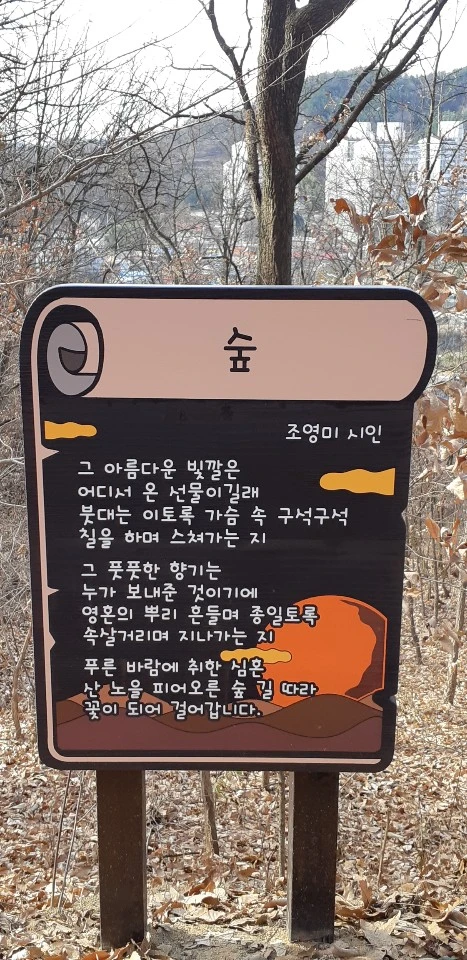 숲
조영미 시인
그 아름다운 빛깔은
어디서 온 선물이길래
붓대는 이토록 가슴 속 구석구석
칠을 하며 스쳐가는 지
그 풋풋한 향기는
누가 보내준 것이기에
영혼의 뿌리 흔들며 종일토록
속살거리며 지나가는 지
푸른 바람에 취한 심혼
산 노을 피어오른 숲 길 따라
꽃이 되어 걸어갑니다.